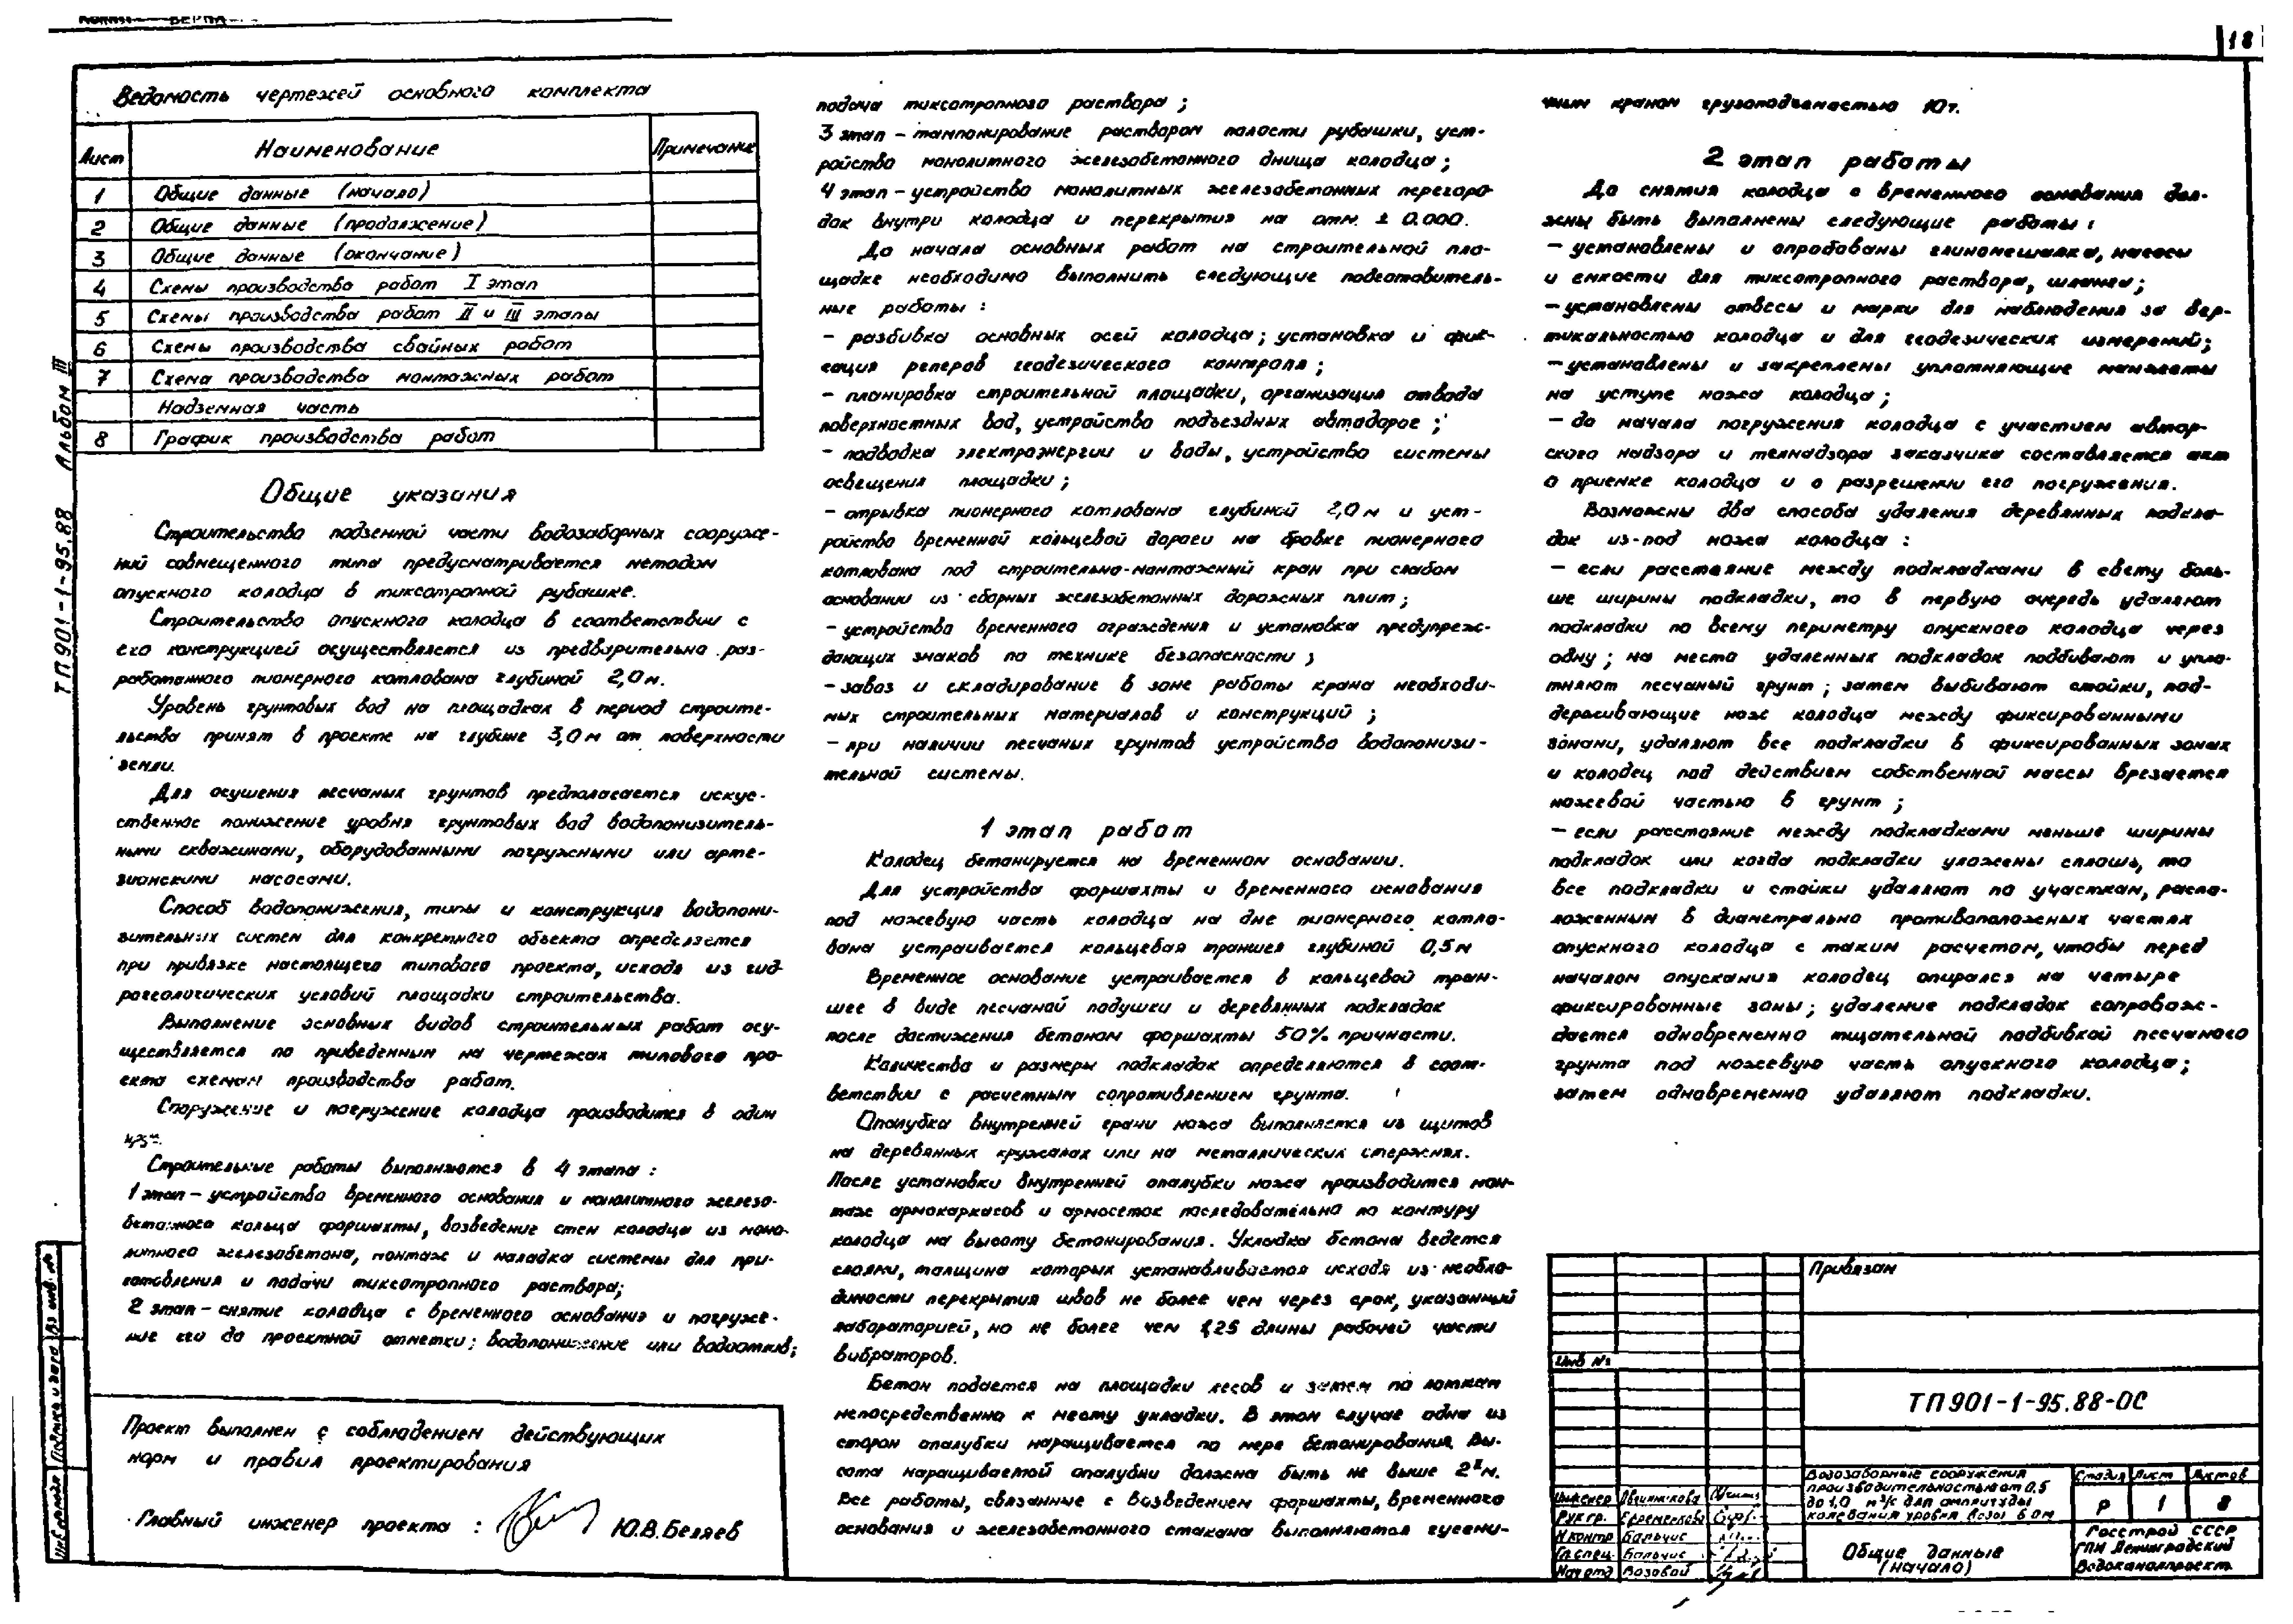 18
Ведомость чертежей основного комплекта
Лист Наименование Примечание
1 Общие данные (начало)
2 Общие данные (продолжение)
3 Общие данные (окончание)
4 Схемы производства работ I этап
5 Схемы производства работ II и III этапы
6 Схемы производства свайных работ
7 Схема производства монтажных работ
Надземная часть
8 График производства работ
ТП 901-1-95.88 Альбом III
Общие указания
Строительство подземной части водозаборных сооруже-
ний совмещенного типа предусматривается методом
опускного колодца в тиксотропной рубашке.
Строительство опускного колодца в соответствии с
его конструкцией осуществляется из предварительно раз-
работанного пионерного котлована глубиной 2,0 м.
Уровень грунтовых вод на площадках в период строите-
льства принят в проекте на глубине 3,0 м от поверхности
земли.
Для осушения песчаных грунтов предполагается искус-
ственное понижение уровня грунтовых вод водопонизитель-
ными скважинами, оборудованными погружными или арте-
зианскими насосами.
Способ водопонижения, типы и конструкция водопони-
зительных систем для конкретного объекта определяется
при привязке настоящего типового проекта, исходя из гид-
рогеологических условий площадки строительства.
Выполнение основных видов строительных работ осу-
ществляется по приведенным на чертежах типового про-
екта схемам производства работ.
Сооружение и погружение колодца производится в один
Строительные работы выполняются в 4 этапа :
1 этап – устройство временного основания и монолитного железо-
бетонного кольца форшахты, возведение стен колодца из моно-
литного железобетона, монтаж и наладка системы для при-
готовления и подачи тиксотропного раствора;
2 этап – снятие колодца с временного основания и погруже-
ние его до проектной отметки; водопонижение или водоотлив;
Проект выполнен с соблюдением действующих
норм и правил проектирования
Главный инженер проекта : Ю.В.Беляев
подача тиксотропного раствора ;
3 этап – тампонирование раствором полости рубашки, уст-
ройство монолитного железобетонного днища колодца ;
4 этап – устройство монолитных железобетонных перегоро-
док внутри колодца и перекрытия на отм. ± 0.000.
До начала основных работ на строительной пло-
щадке необходимо выполнить следующие подготовитель-
ные работы :
– разбивка основных осей колодца ; установка и фик-
сация реперов геодезического контроля ;
– планировка строительной площадки, организация отвода
поверхностных вод, устройство подъездных автодорог ;
– подводка электроэнергии и воды, устройство системы
освещения площадки ;
– отрывка пионерного котлована глубиной 2,0 м и уст-
ройство временной кольцевой дороги на бровке пионерного
котлована под строительно-монтажный кран при слабом
основании из сборных железобетонных дорожных плит ;
– устройство временного ограждения и установка предупреж-
дающих знаков по технике безопасности ;
– завоз и складирование в зоне работы крана необходи-
мых строительных материалов и конструкций ;
– при наличии песчаных грунтов устройство водопонизи-
тельной системы.
1 этап работ
Колодец бетонируется на временном основании.
Для устройства форшахты и временного основания
под ножевую часть колодца на дне пионерного котло-
вана устраивается кольцевая траншея глубиной 0,5 м
Временное основание устраивается в кольцевой тран-
шее в виде песчаной подушки и деревянных подкладок
после достижения бетоном форшахты 50% прочности.
Количество и размеры подкладок определяются в соот-
ветствии с расчетным сопротивлением грунта.
Опалубка внутренней грани ножа выполняется из щитов
на деревянных кружалах или на металлических стержнях.
После установки внутренней опалубки ножа производится мон-
таж армокаркасов и армосеток последовательно по контуру
колодца на высоту бетонирования. Укладка бетона ведется
слоями, толщина которых устанавливается исходя из необхо-
димости перекрытия швов не более чем через срок, указанный
лабораторией, но не более чем 1,25 длины рабочей части
вибраторов.
Бетон подается на площадки лесов и затем по лоткам
непосредственно к месту укладки. В этом случае одна из
сторон опалубки наращивается по мере бетонирования. Вы-
сота наращиваемой опалубки должна быть не выше 2х м.
Все работы, связанные с возведением форшахты, временного
основания и железобетонного стакана выполняются гусени-
чным краном грузоподъемностью 10т.
2 этап работы
До снятия колодца с временного основания дол-
жны быть выполнены следующие работы :
– установлены и опробованы глиномешалка, насосы
и емкости для тиксотропного раствора, шланги ;
– установлены отвесы и марки для наблюдения за вер-
тикальностью колодца и для геодезических измерений ;
– установлены и закреплены уплотняющие манжеты
на уступе ножа колодца ;
– до начала погружения колодца с участием автор-
ского надзора и технадзора заказчика составляется акт
о приемке колодца и о разрешении его погружения.
Возможны два способа удаления деревянных подкла-
док из-под ножа колодца :
– если расстояние между подкладками в свету боль-
ше ширины подкладки, то в первую очередь удаляют
подкладки по всему периметру опускного колодца через
одну ; на место удаленных подкладок подбивают и упло-
тняют песчаный грунт ; затем выбивают стойки, под-
держивающие нож колодца между фиксированными
зонами, удаляют все подкладки в фиксированных зонах
и колодец под действием собственной массы врезается
ножевой частью в грунт ;
– если расстояние между подкладками меньше ширины
подкладок или когда подкладки уложены сплошь, то
все подкладки и стойки удаляют по участкам, распо-
ложенным в диаметрально противоположных частях
опускного колодца с таким расчетом, чтобы перед
началом опускания колодец опирался на четыре
фиксированные зоны ; удаление подкладок сопровож-
дается одновременно тщательной подбивкой песчаного
грунта под ножевую часть опускного колодца ;
затем одновременно удаляют подкладки.
Привязан
Инв №
ТП 901-1-95.88-ОС
Водозаборные сооружения
производительностью от 0,5
до 1,0 м³/с для амплитуды
колебания уровня воды 6.0м
Стадия Лист Листов
Р 1 8
Инженер
Рук.гр. Ефременкова
Н.контр Бальчис
Гл.спец. Бальчис
Нач отд Возовой
Общие данные
(начало)
Госстрой СССР
ГПИ Ленинградский
Водоканалпроект
Инв.№ подл Подпись и дата Вз инв. №